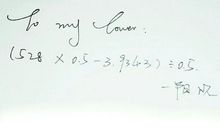 To my lover:
(528 × 0.5 - 3.9343) ÷ 0.5